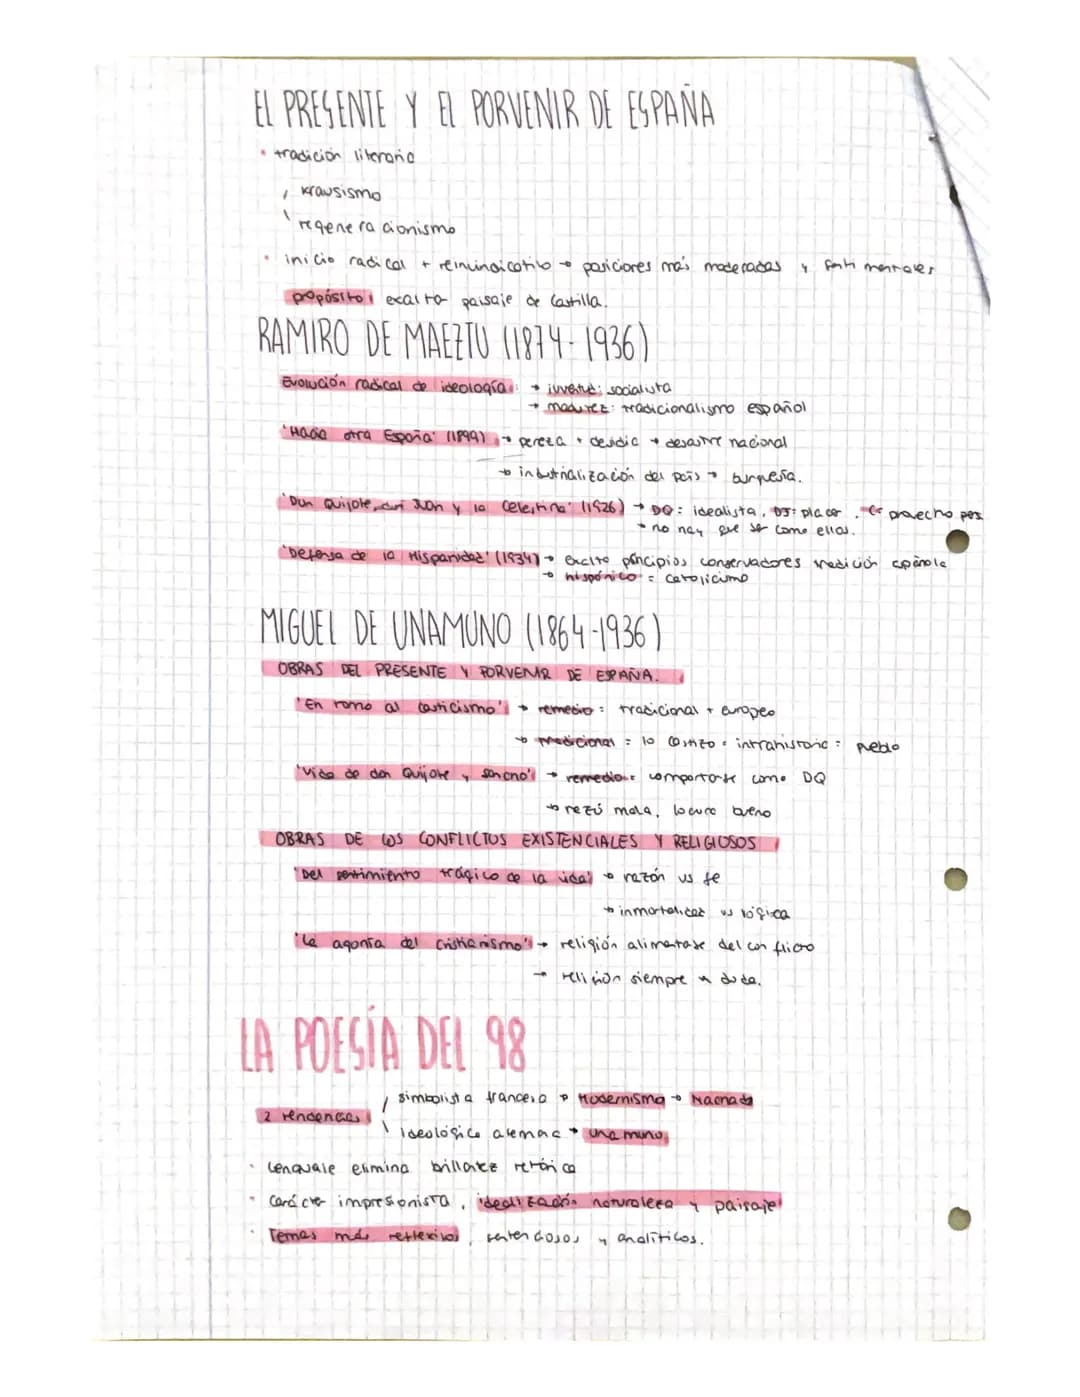 EL PRESENTE Y EL PORVENIR DE ESPAÑA
• tradición literaria
krausismo
regeneracionismo
• inicio radical + reivindicativo → posiciones más moderadas y
propósito: exaltar paisaje de Castilla.
RAMIRO DE MAEZTU (1874-1936)
Evolución radical de ideología: → juventud: socialista
→ madurez: tradicionalismo español
'Hacia otra España' (1899) → pereza + desidia → desastre nacional
→ industrialización del país → burguesía.
'Don Quijote, don Juan y la Celestina' (1926) → DQ: idealista, DJ: placer, Ce provecho pers
→ no hay que ser como ellos.
'Defensa de la Hispanidad' (1934) → exalta principios conservadores tradición española
→ hispánico = catolicismo
MIGUEL DE UNAMUNO (1864-1936)
OBRAS DEL PRESENTE Y PORVENIR DE ESPAÑA.
'En torno al casticismo' → remedio: tradicional + europeo
→ tradicional = lo castizo = intrahistoria = pueblo
'Vida de don Quijote y Sancho' → remedio: comportarse como DQ
→ razón mala, locura buena
OBRAS DE LOS CONFLICTOS EXISTENCIALES Y RELIGIOSOS
'Del sentimiento trágico de la vida' → razón vs fe
→ inmortalidad vs lógica
'La agonía del cristianismo' → religión alimentase del conflicto
→ religión siempre duda.
LA POESÍA DEL 98
simbolista francesa → Modernismo → Machado
2 tendencias
ideológica alemana → Unamuno
• Lenguaje elimina brillantez retórica
• Carácter impresionista, idealización naturaleza y paisaje
• Temas más reflexivos, sentenciosos y analíticos.